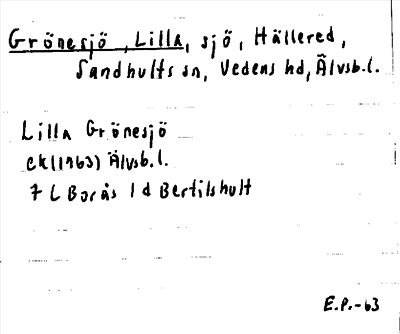 Grönesjö, Lilla, sjö, Hällered,
Sandhults sn, Vedens hd, Älvsb.l.
Lilla Grönesjö
Ek(1963) Älvsb.l.
7 C Borås 1 d Bertilshult
E.P.-63